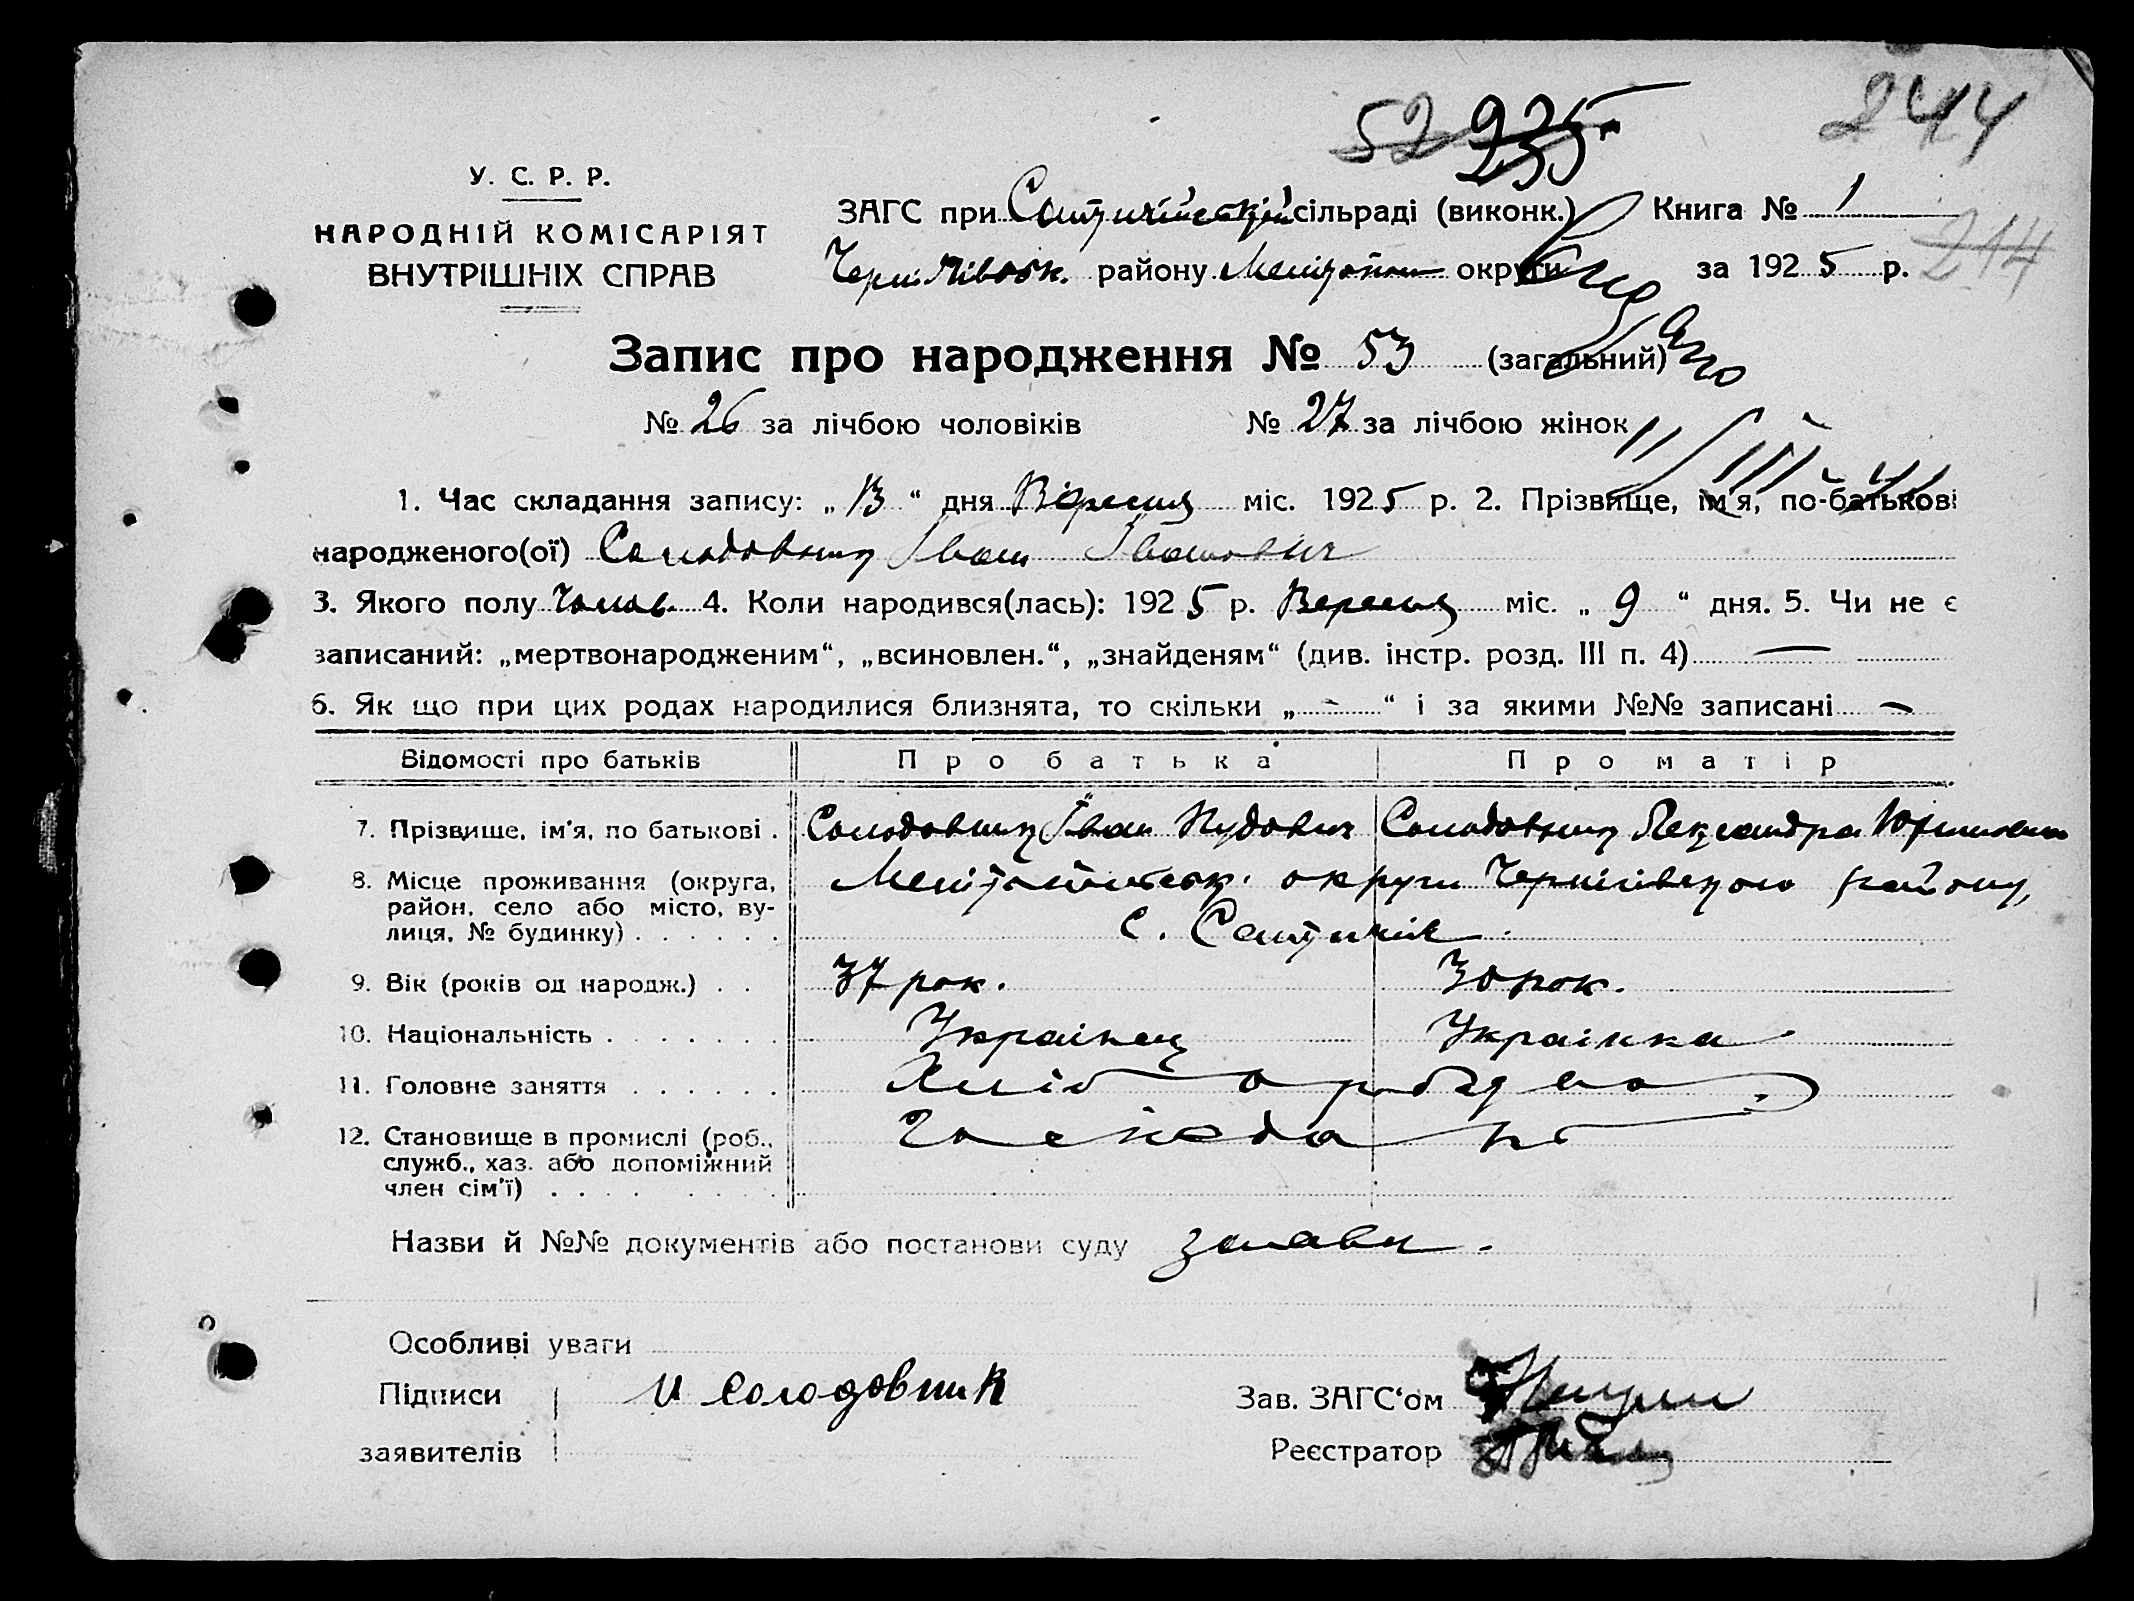 52 235 244
У. С. Р. Р.
НАРОДНІЙ КОМІСАРІЯТ
ВНУТРІШНІХ СПРАВ
ЗАГС при сільраді (виконк.) Книга № 1
району округи за 192 5 р. 214
Видано
Запис про народження № 53 (загальний)
№ 26 за лічбою чоловіків № 27 за лічбою жінок
11/III-41
1. Час складання запису: „ 13 “ дня Вересня міс. 192 5 р. 2. Прізвище, ім'я, по-батькові
народженого(ої) Солодовник Іван Іванович
3. Якого полу Чолов. 4. Коли народився(лась): 192 5 р. Вересня міс. „ 9 “ дня. 5. Чи не є
записаний: „мертвонародженим“, „всиновлен.“, „знайденям“ (див. інстр. розд. III п. 4) —
6. Як що при цих родах народилися близнята, то скільки „ - “ і за якими №№ записані —
Відомості про батьків Про батька Про матір
7. Прізвище, ім'я, по батькові . Солодовник Іван Нудович Солодовник Олександра
8. Місце проживання (округа, округи Чернігівського району,
район, село або місто, ву-
лиця, № будинку) . . . . . . с.
9. Вік (років од народж.) . . 37 рок. 30 рок.
10. Національність . . . . . . . Українец Українка
11. Головне заняття . . . . . . Хліборобство
12. Становище в промислі (роб., Господарі
служб., хаз. або допоміжний
член сім'ї) . . . . . . . .
Назви й №№ документів або постанови суду заява.
Особливі уваги
Підписи И Солодовник Зав. ЗАГС‘ом
заявителів Реєстратор